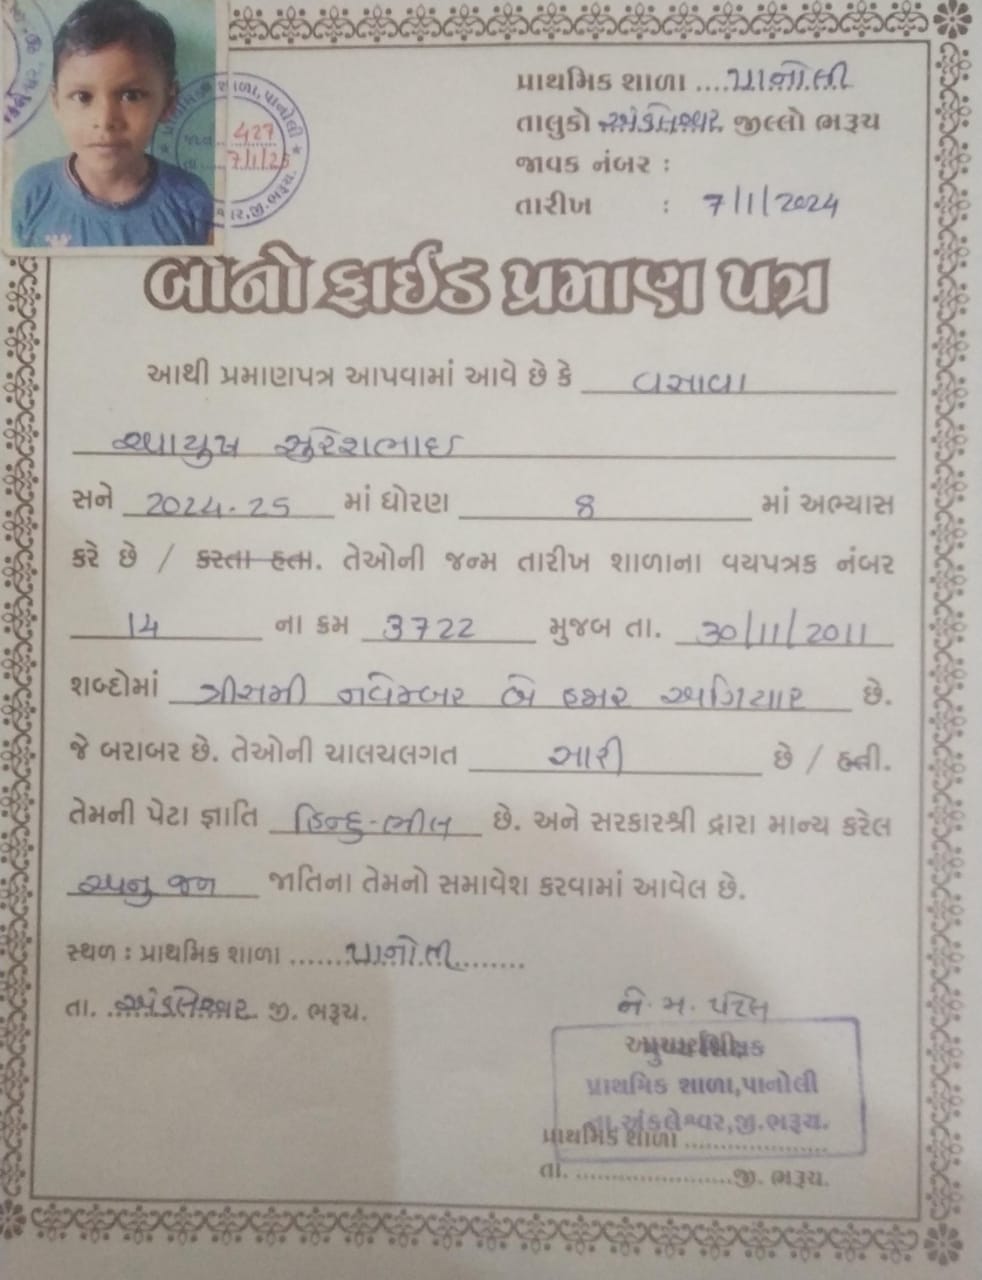 પ્રાથમિક શાળા ....પાનોલી
તાલુકો અંકલેશ્વર જીલ્લો ભરૂચ
જાવક નંબર :
તારીખ : 7/1/2024
પ્રાથમિક શાળા, પાનોલી
જા.ન. 427
તા. 7/1/25
જી.ભરૂચ.
બોનોફાઈડ પ્રમાણ પત્ર
આથી પ્રમાણપત્ર આપવામાં આવે છે કે વસાવા
આયુષ સુરેશભાઇ
સને 2024-25 માં ધોરણ 8 માં અભ્યાસ
કરે છે / કરતા હતા. તેઓની જન્મ તારીખ શાળાના વયપત્રક નંબર
14 ના ક્રમ 3722 મુજબ તા. 30/11/2011
શબ્દોમાં ત્રીસમી નવેમ્બર બે હજાર અગિયાર છે.
જે બરાબર છે. તેઓની ચાલચલગત સારી છે / હતી.
તેમની પેટા જ્ઞાતિ હિન્દુ-ભીલ છે. અને સરકારશ્રી દ્વારા માન્ય કરેલ
અનુ જન જાતિના તેમનો સમાવેશ કરવામાં આવેલ છે.
સ્થળ : પ્રાથમિક શાળા ......પાનોલી........
તા. અંકલેશ્વર જી. ભરૂચ.
ને. મ. પટેલ
પ્રાથમિક શાળા,પાનોલી
તા.અંકલેશ્વર,જી.ભરૂચ.
પ્રાથમિક શાળા ....................
તા. ......................જી. ભરૂચ.